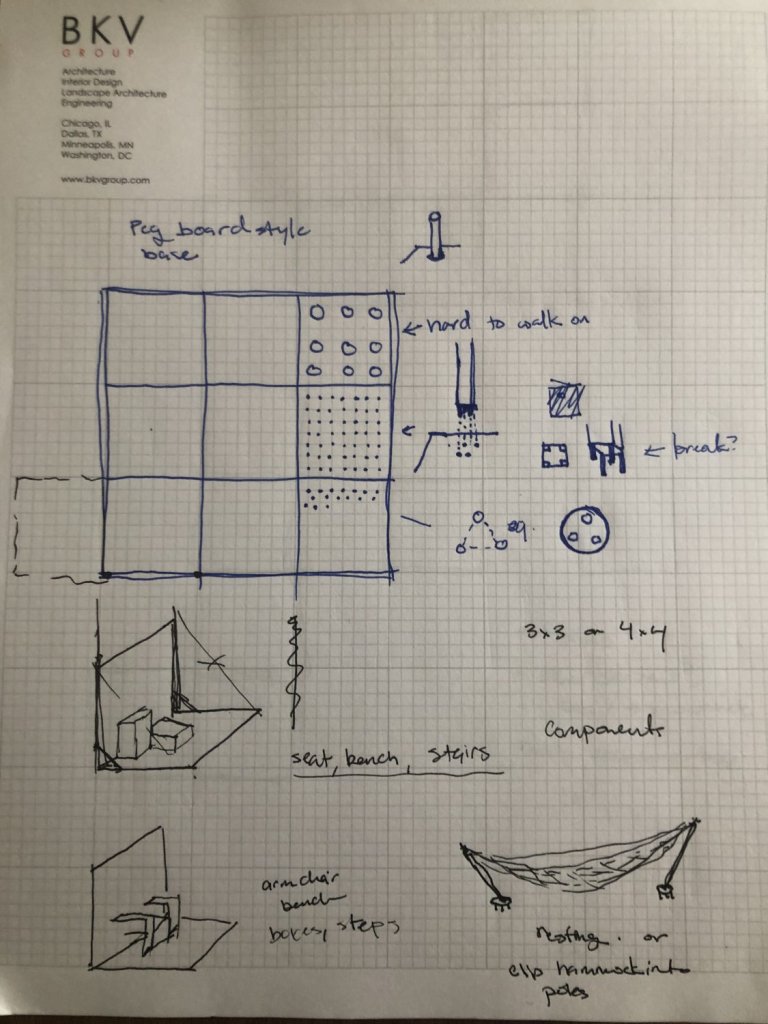 BKV
GROUP
Architecture
Interior Design
Landscape Architecture
Engineering
Chicago, IL
Dallas, TX
Minneapolis, MN
Washington, DC
www.bkvgroup.com
Peg board style
base
← hard to walk on
← break?
eq.
3x3 or 4x4
components
seat, bench, stairs
armchair
bench
boxes, steps
resting. or
clip hammock into
poles